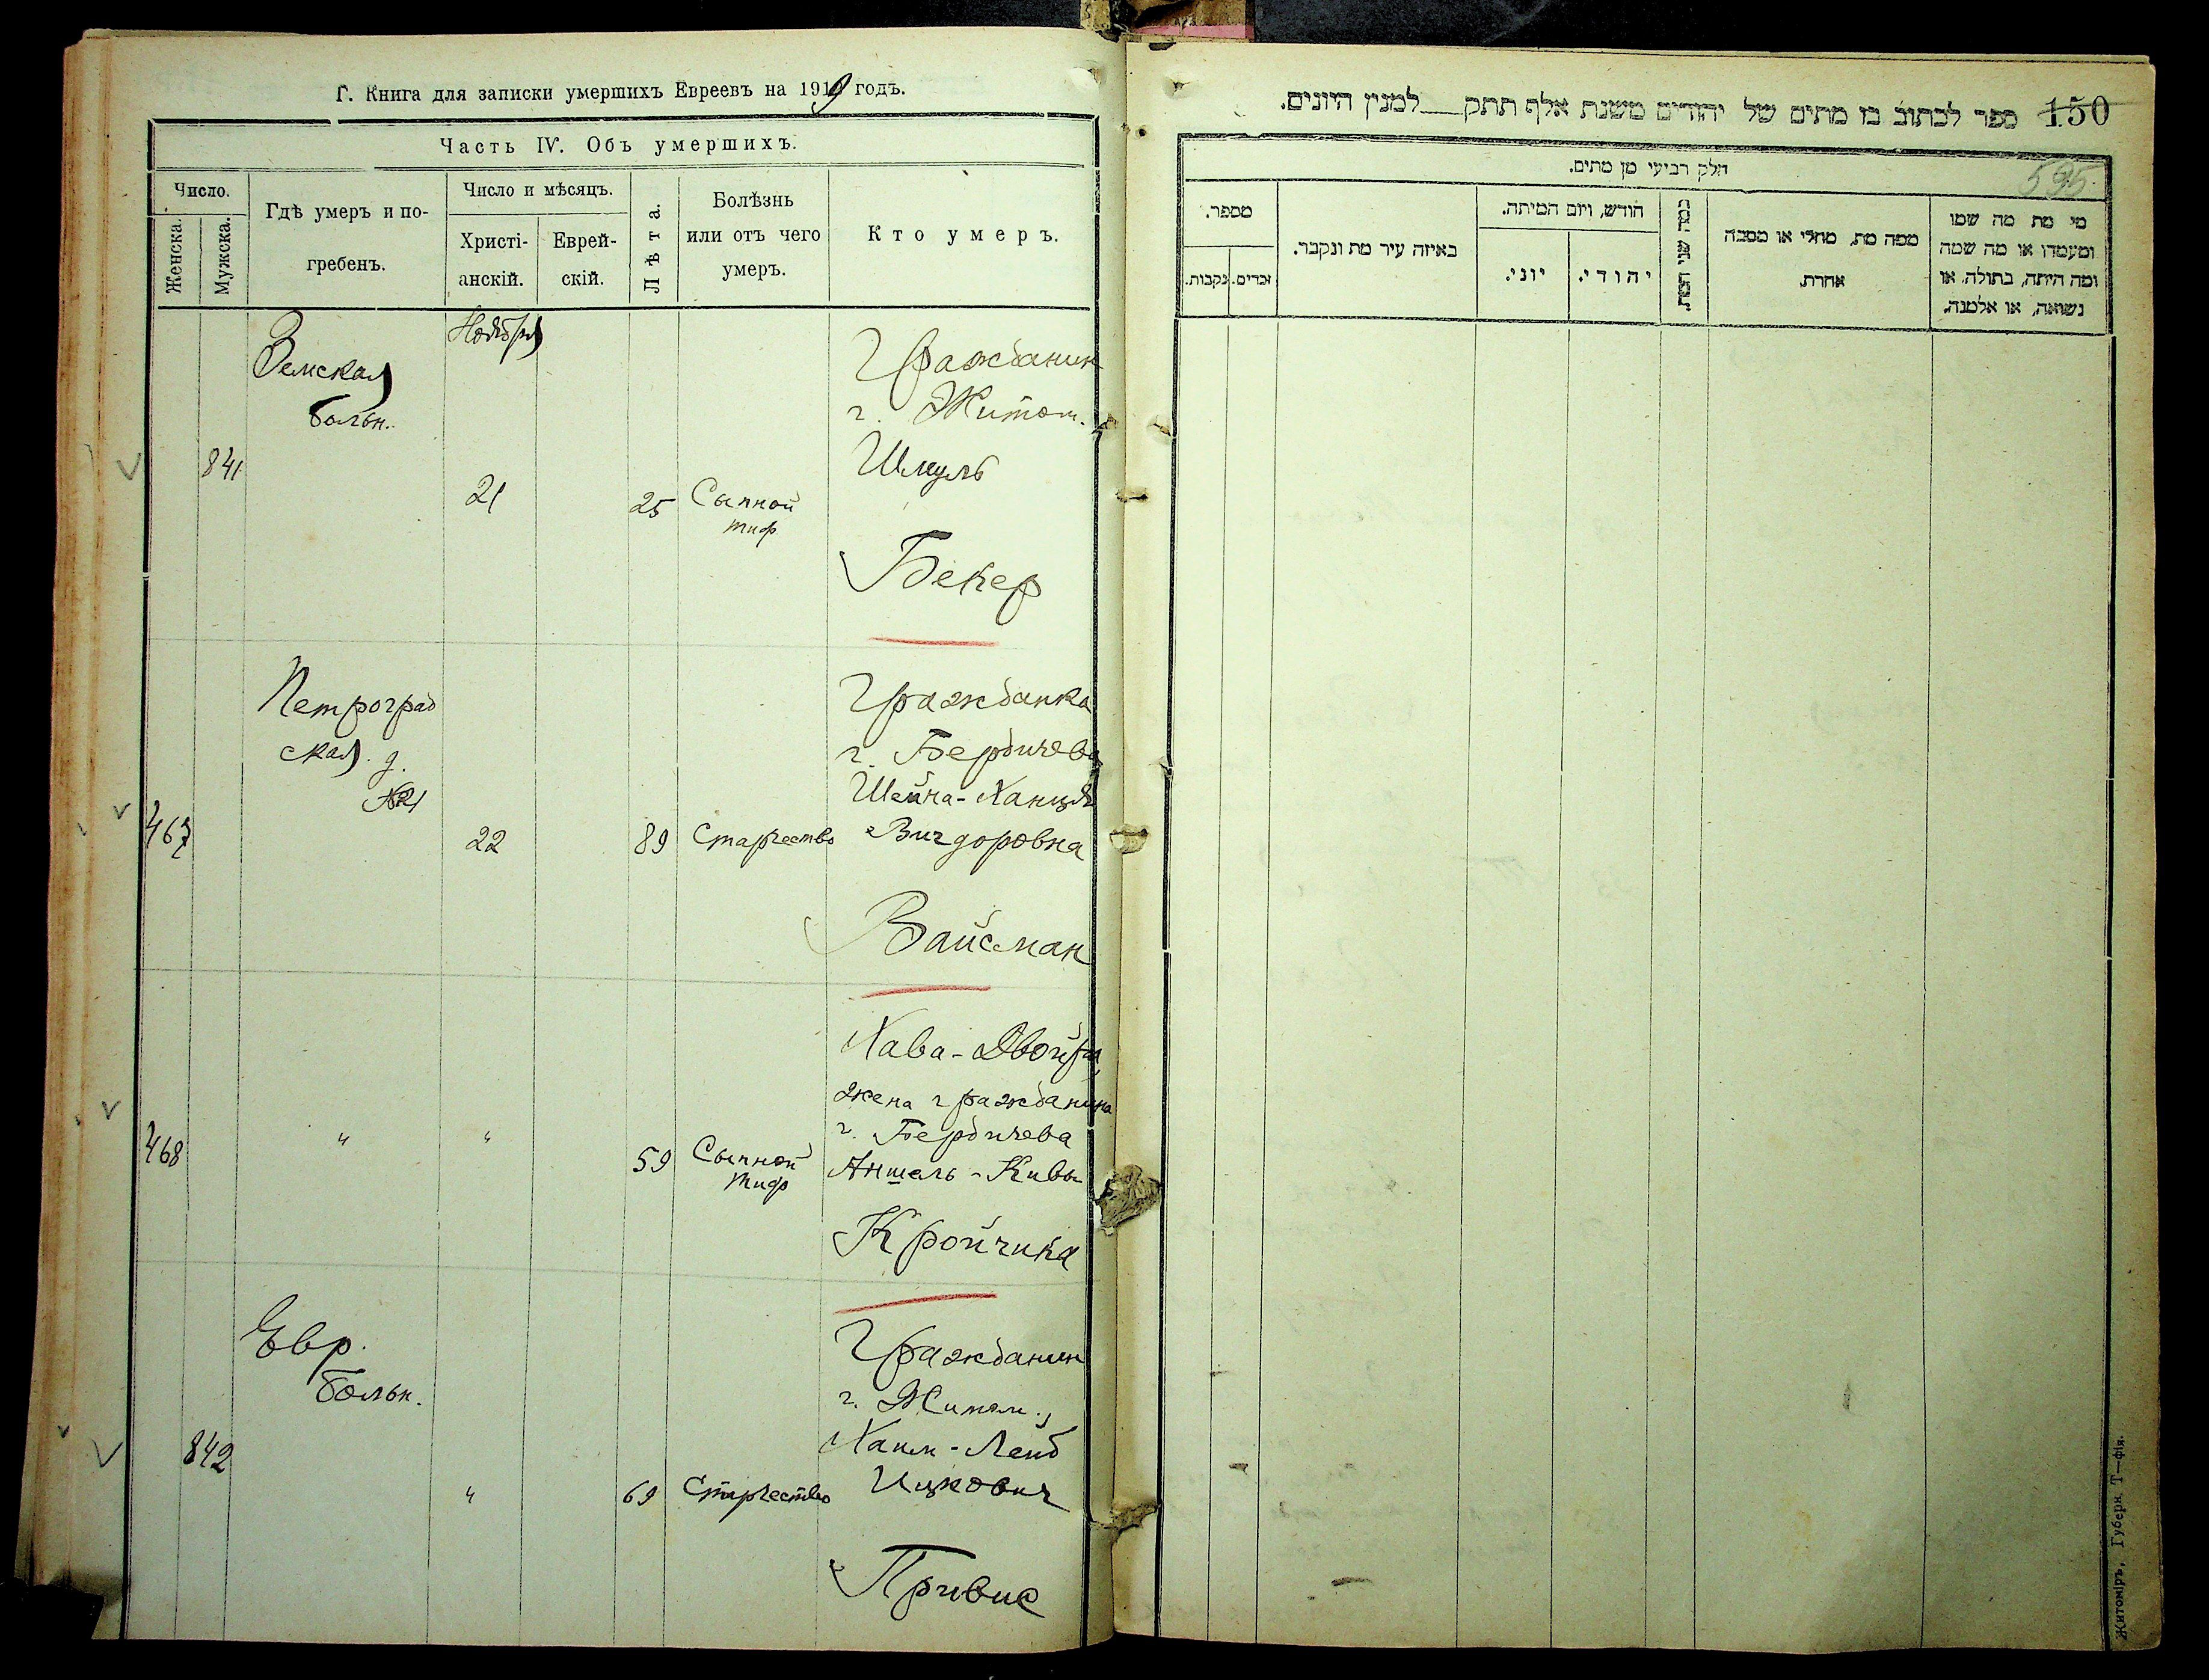 Г. Книга для записки умершихъ Евреевъ на 1919 годъ.
Часть IV. Объ умершихъ.
Число.
Женска.
Мужска.
Гдѣ умеръ и по-
гребенъ.
Число и мѣсяцъ.
Христі-
анскій.
Еврей-
скій.
Лѣта.
Болѣзнь
или отъ чего
умеръ.
Кто умеръ.
Ноября
841
Земская
больн.
21
25
Сыпной
тиф
Гражданин
г. Житом.
Шмуль
Бекер
467
Петроград
ская д.
№21
22
89
Старчество
Гражданка
г. Бердичева
Шейна-Ханця
Вигдоровна
Вайсман
468
"
"
59
Сыпной
тиф
Хава-Двойра,
жена гражданина
г. Бердичева
Аншель-Кивы
Кройчика
842
Евр.
больн.
"
69
Старчество
Гражданин
г. Житом.,
Хаим-Лейб
Ицкович
Привис
150
ספר לכתוב בו מתים של יהודים משנת אלף תתק למנין היונים.
595
חלק רביעי מן מתים.
מספר.
נקבות.
זכרים.
באיזה עיר מת ונקבר.
חודש, ויום המיתה.
יוני.
יהודי.
כמה שני המת.
מפה מת, מחלי או מסבה
אחרת.
מי מת מה שמו
ומעמדו או מה שמה
ומה היתה, בתולה, או
נשואה, או אלמנה.
Житоміръ, Губерн. Т—фія.